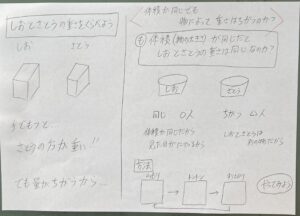 しおとさとうの重さをくらべよう
しお さとう
手でもつと…
さとうの方が重い!!
でも量がちがうから…
体積が同じでも
物によって重さはちがうのか?
体積(物の大きさ)が同じだと
しおとさとうの重さは同じなのか?
しお さとう
同じ 0人
ちがう
体積が同じだから
しおとさとうは
べつの物だから
方法
やってみよう